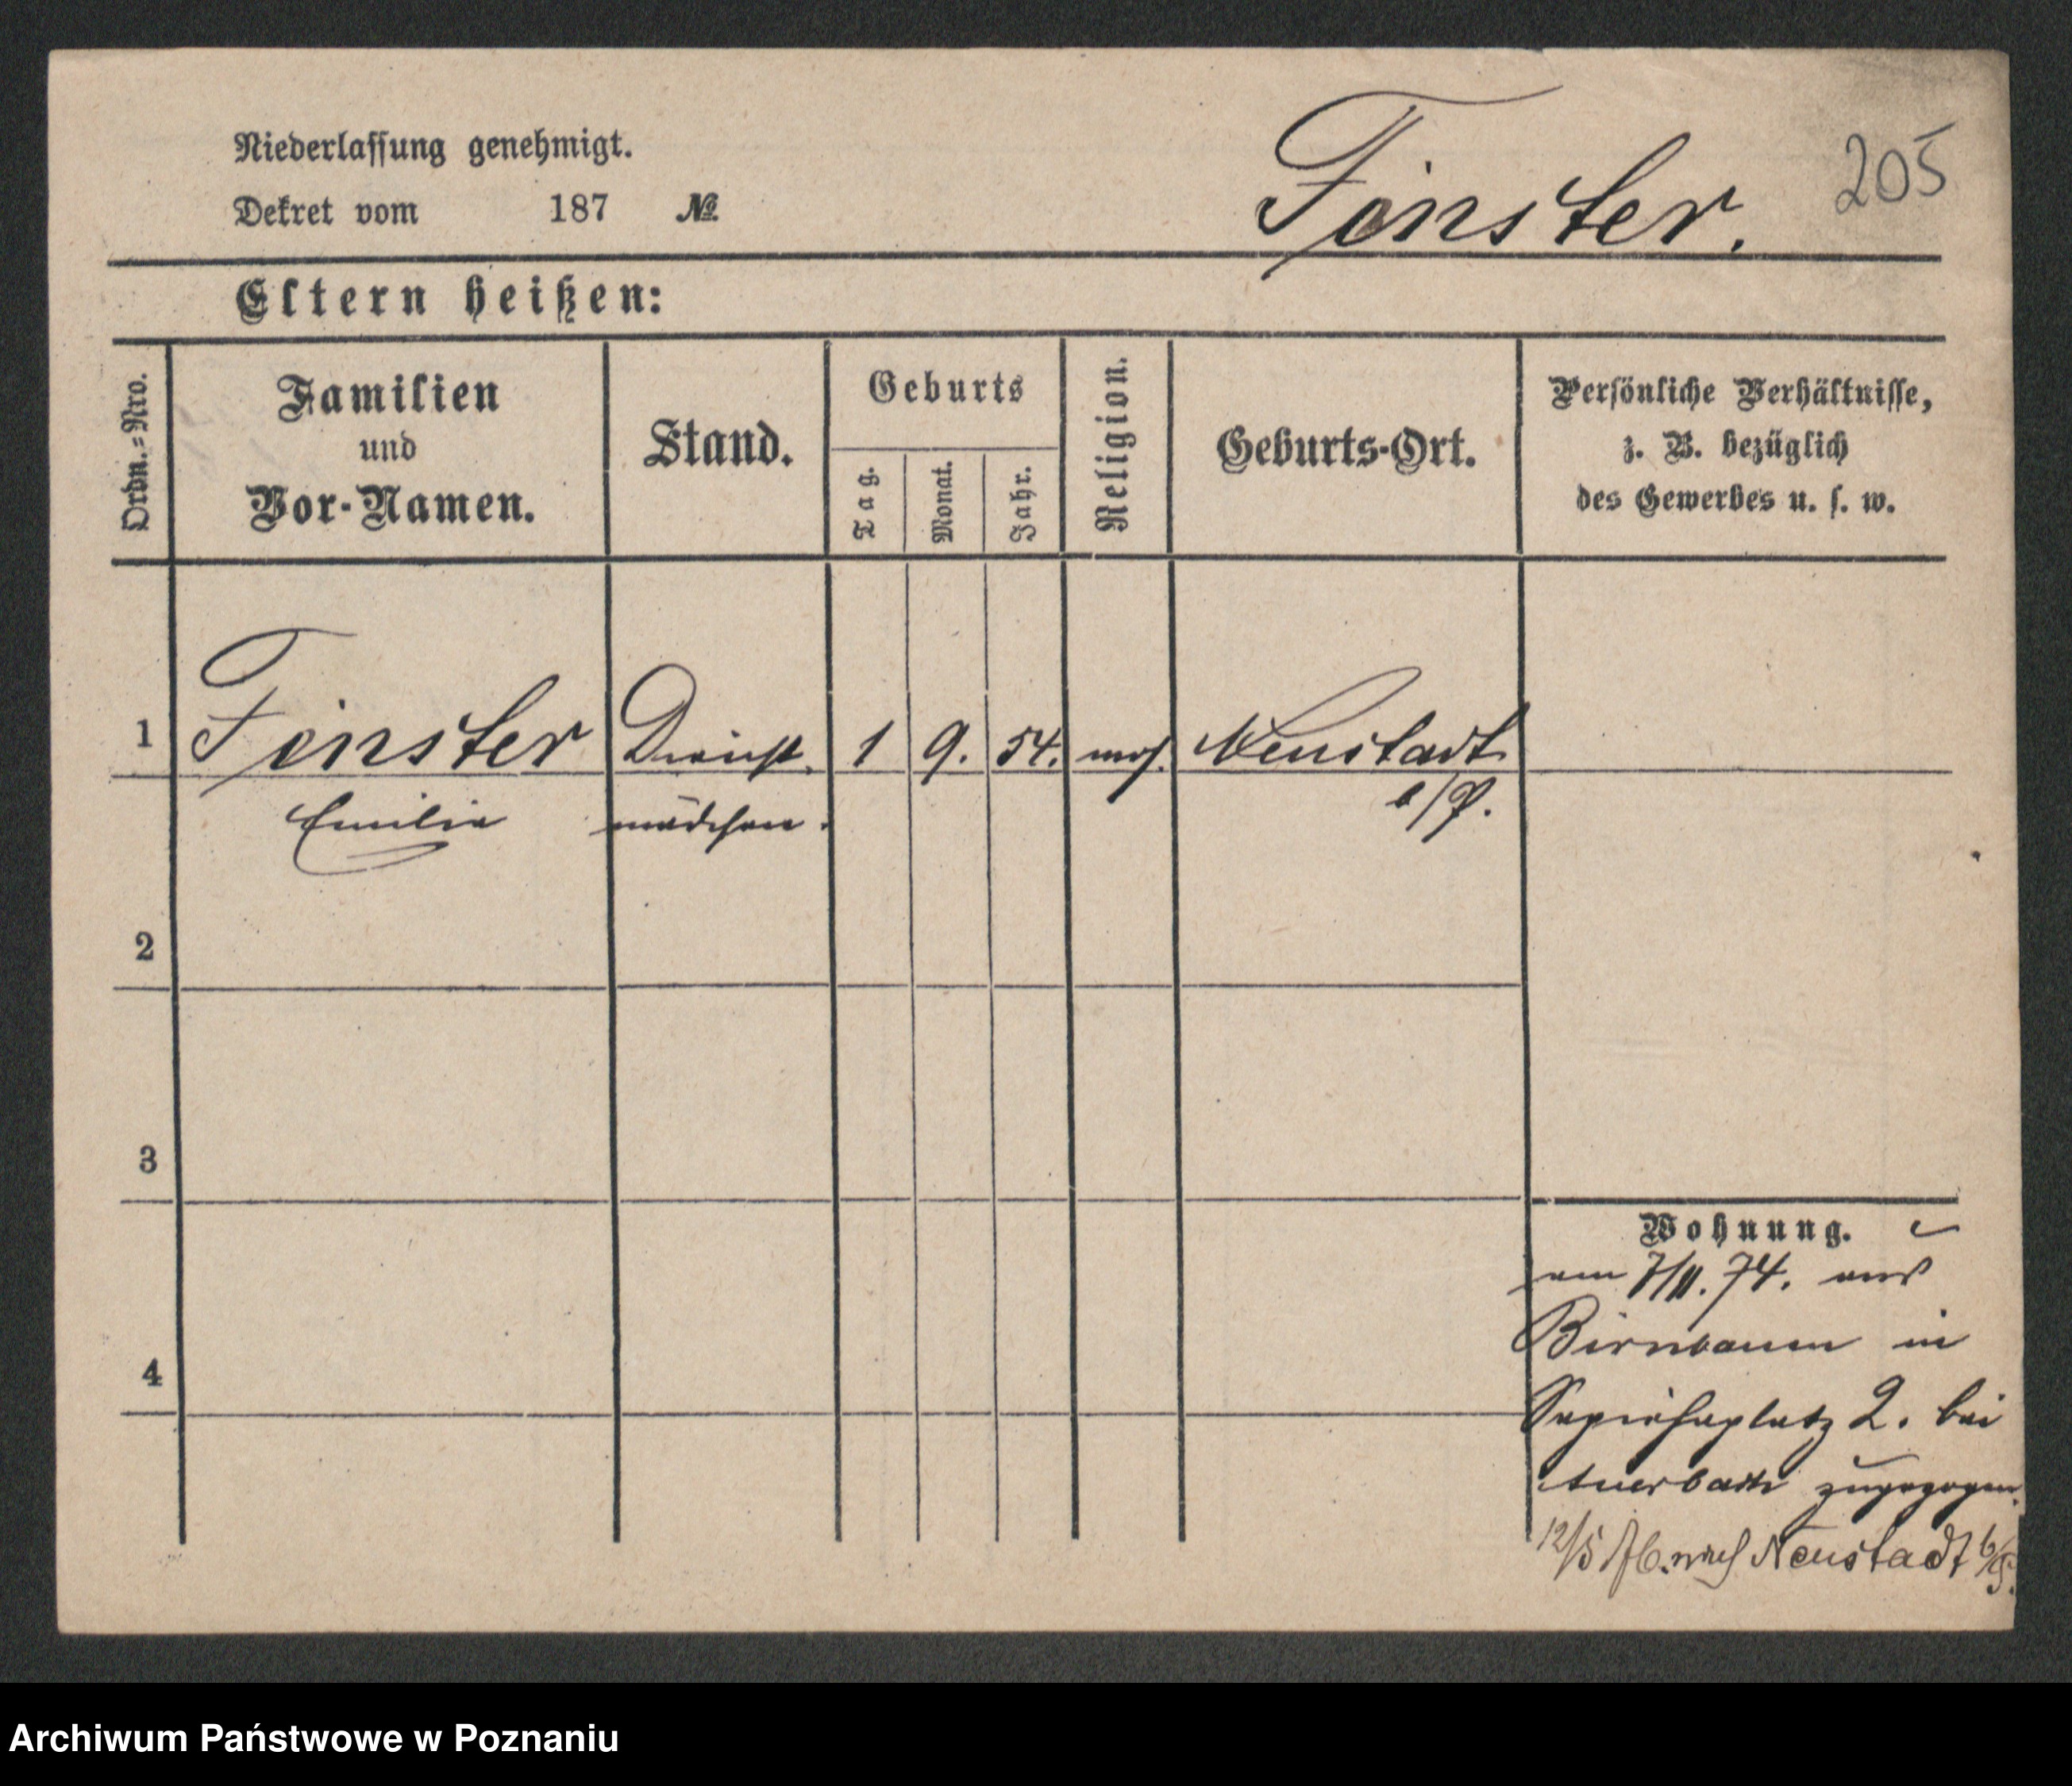 Niederlassung genehmigt.
Dekret vom 187 №
Finster.
205
Eltern heißen:
Ordn.-Nro.
Familien
und
Vor-Namen.
Stand.
Geburts
Tag.
Monat.
Jahr.
Religion.
Geburts-Ort.
Persönliche Verhältnisse,
z. B. bezüglich
des Gewerbes u. s. w.
1 Finster Dienst. 1 9. 54. mos. Neustadt
Emilie mädchen. b/P.
2
3
4
Wohnung.
am 7/11. 74. aus
Birnbaum in
Sapiehaplatz 2. bei
Auerbach zugezogen.
12/5 Ab. nach Neustadt b/P.
Archiwum Państwowe w Poznaniu